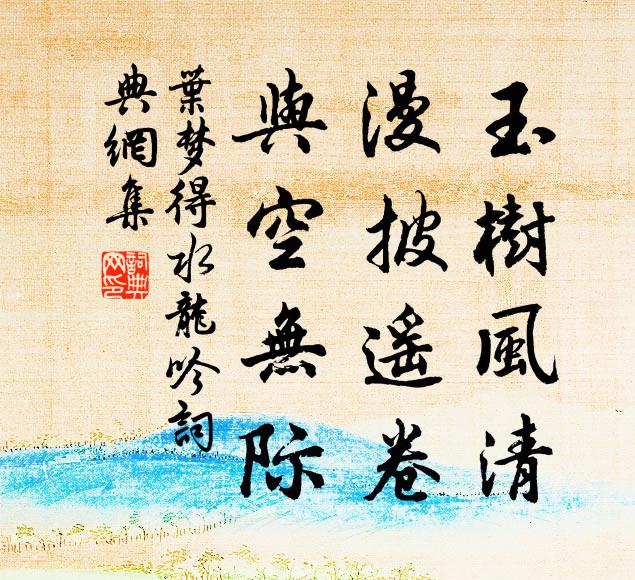 玉樹風清
漫披遥卷
與空無际
葉梦得水龍吟詞
典網集
詞典
网印